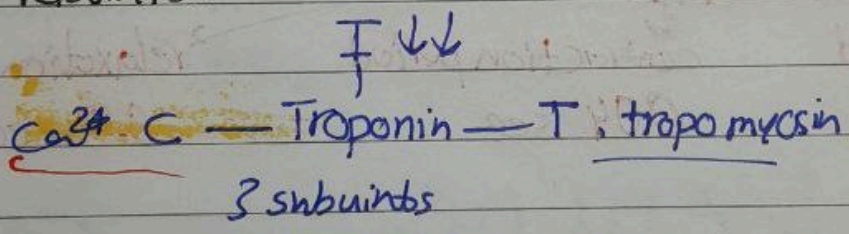 I ↓↓
Ca²⁺ . C — Troponin — T : tropomycsin
3 subuinbs